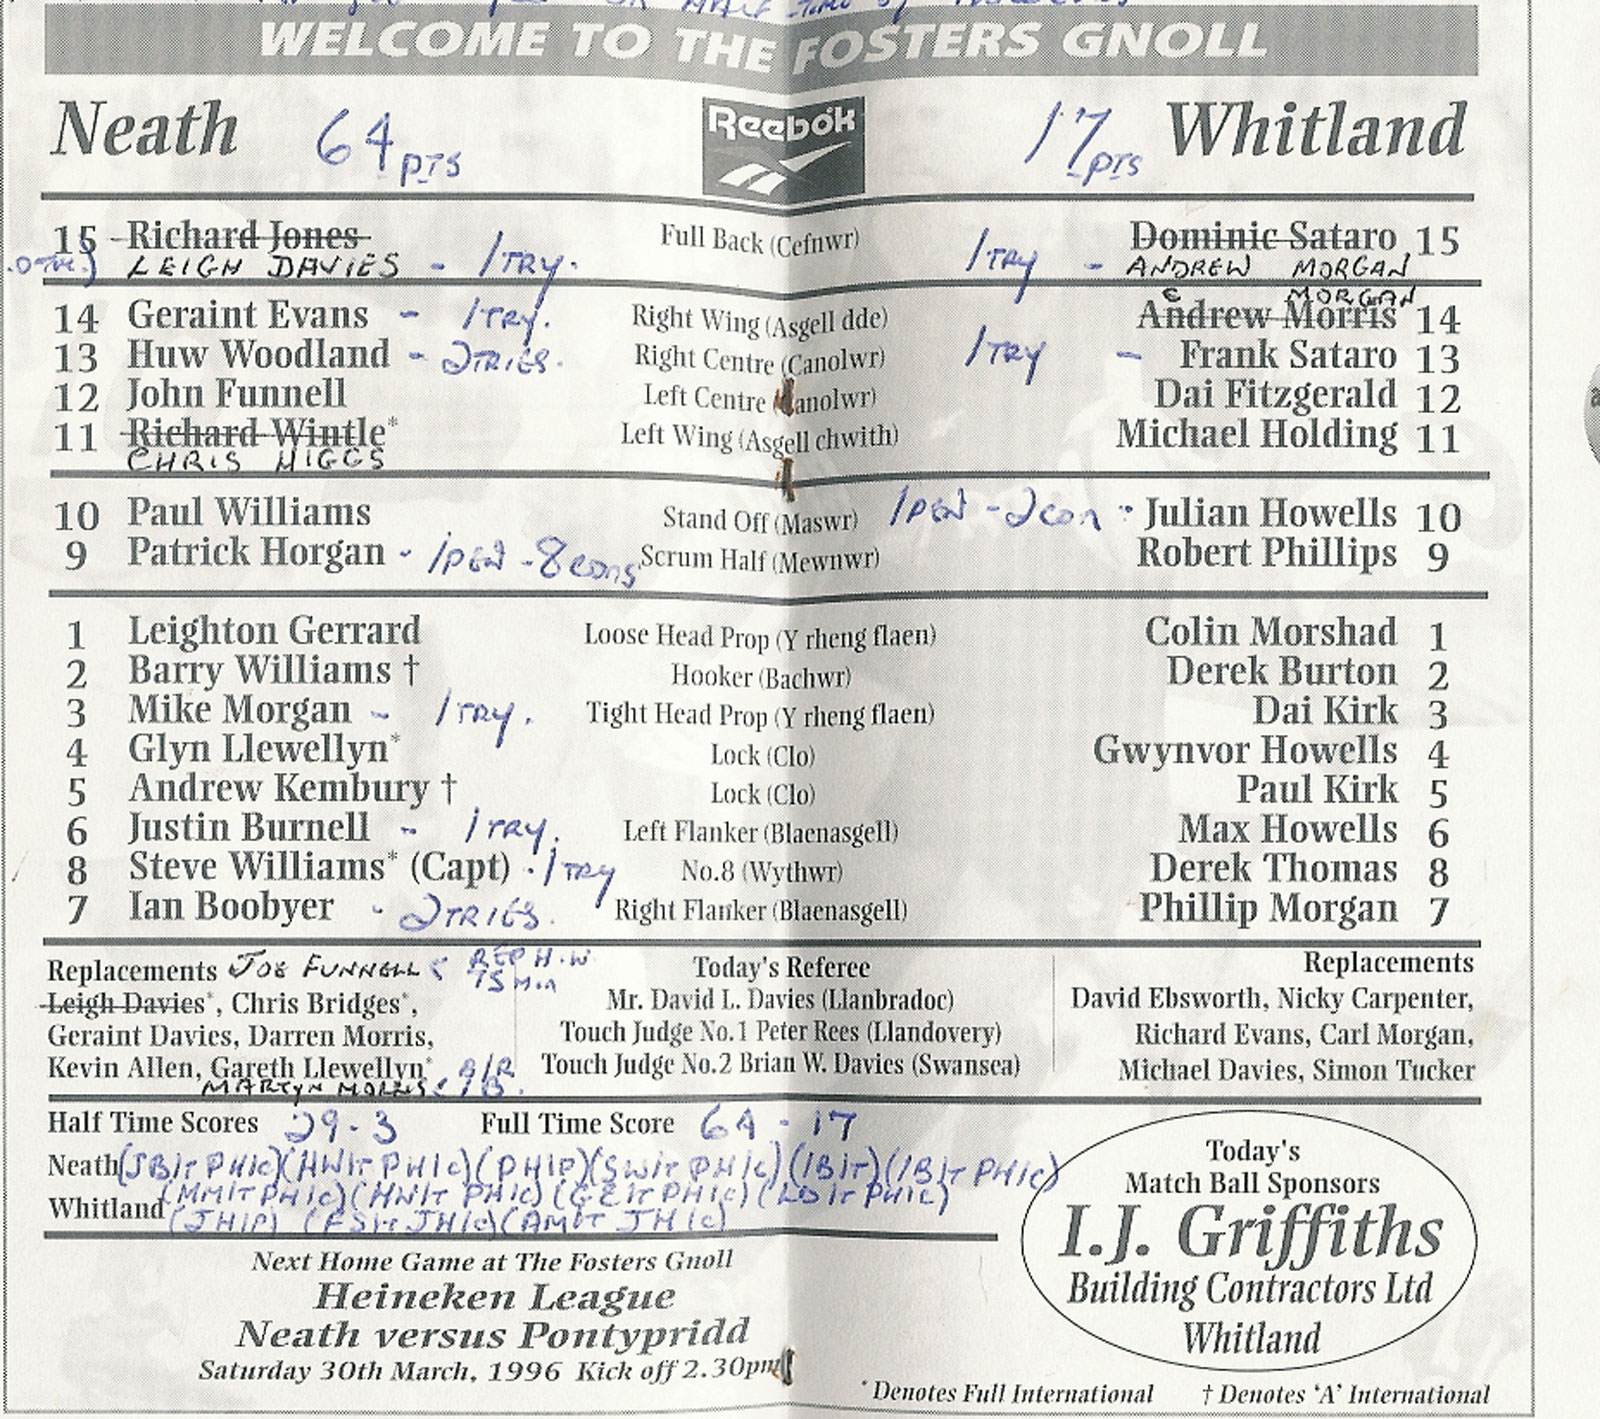 OR HALF-TIME
WELCOME TO THE FOSTERS GNOLL
Neath 64 PTS Reebok 17 PTS Whitland
15 Richard Jones Full Back (Cefnwr) Dominic Sataro 15
LEIGH DAVIES - 1 TRY. 1 TRY - ANDREW MORGAN
C MORGAN
14 Geraint Evans - 1 TRY. Right Wing (Asgell dde) Andrew Morris 14
13 Huw Woodland - 2 TRIES. Right Centre (Canolwr) 1 TRY - Frank Sataro 13
12 John Funnell Left Centre (Canolwr) Dai Fitzgerald 12
11 Richard Wintle* Left Wing (Asgell chwith) Michael Holding 11
CHRIS HIGGS
10 Paul Williams Stand Off (Maswr) 1 PEN - 2 CON - Julian Howells 10
9 Patrick Horgan - 1 PEN - 8 CONS Scrum Half (Mewnwr) Robert Phillips 9
1 Leighton Gerrard Loose Head Prop (Y rheng flaen) Colin Morshad 1
2 Barry Williams † Hooker (Bachwr) Derek Burton 2
3 Mike Morgan - 1 TRY. Tight Head Prop (Y rheng flaen) Dai Kirk 3
4 Glyn Llewellyn* Lock (Clo) Gwynvor Howells 4
5 Andrew Kembury † Lock (Clo) Paul Kirk 5
6 Justin Burnell - 1 TRY. Left Flanker (Blaenasgell) Max Howells 6
8 Steve Williams* (Capt) - 1 TRY No.8 (Wythwr) Derek Thomas 8
7 Ian Boobyer - 2 TRIES. Right Flanker (Blaenasgell) Phillip Morgan 7
Replacements JOE FUNNELL REP H.W 75 Min
Leigh Davies*, Chris Bridges*,
Geraint Davies, Darren Morris,
Kevin Allen, Gareth Llewellyn*
MARTYN MORRIS
Today's Referee
Mr. David L. Davies (Llanbradoc)
Touch Judge No.1 Peter Rees (Llandovery)
Touch Judge No.2 Brian W. Davies (Swansea)
Replacements
David Ebsworth, Nicky Carpenter,
Richard Evans, Carl Morgan,
Michael Davies, Simon Tucker
Half Time Scores 29-3 Full Time Score 64-17
Neath (JB1T PH1C) (HW1T PH1C) (PH1P) (SW1T PH1C) (IB1T) (IB1T PH1C)
(MM1T PH1C) (HW1T PH1C) (GE1T PH1C) (LD1T PH1C)
Whitland (JH1P) (FS1T JH1C) (AM1T JH1C)
Next Home Game at The Fosters Gnoll
Heineken League
Neath versus Pontypridd
Saturday 30th March, 1996 Kick off 2.30pm
Today's
Match Ball Sponsors
I.J. Griffiths
Building Contractors Ltd
Whitland
* Denotes Full International † Denotes 'A' International